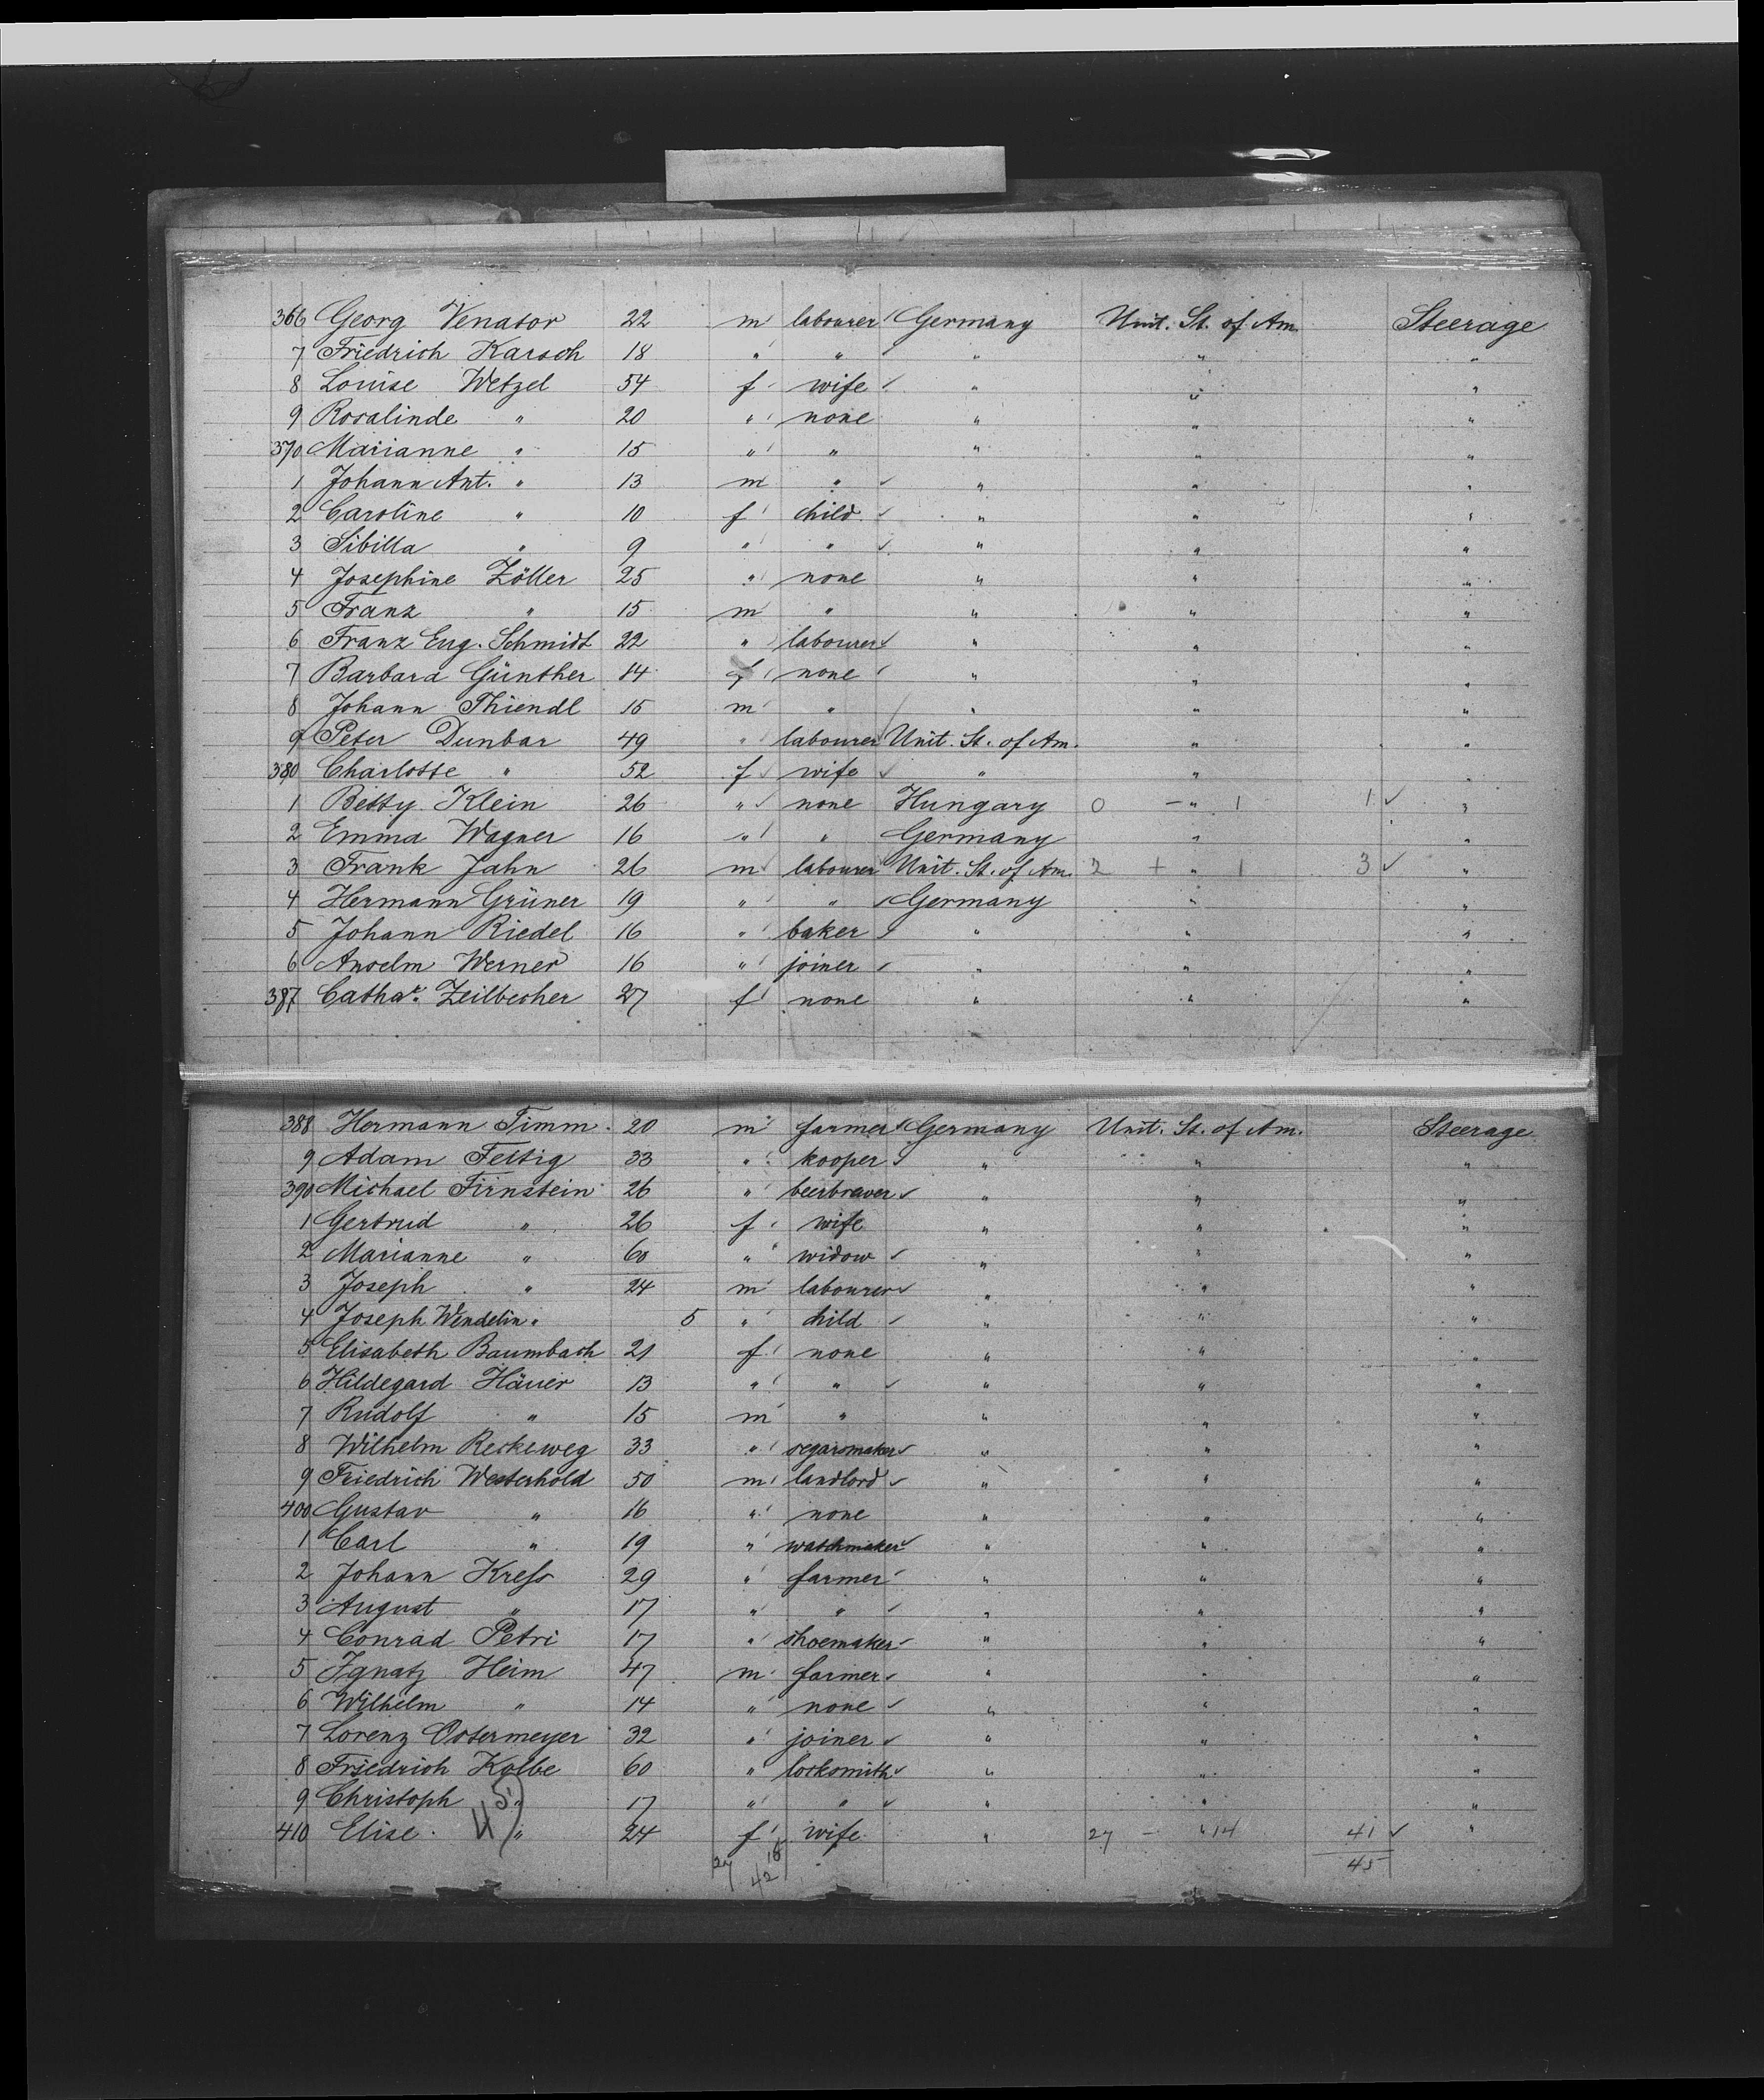 366 Georg Venator 22 m labourer Germany Unit. St. of Am. Steerage
7 Friedrich Karsch 18 " " " " "
8 Louise Wetzel 54 f wife " " "
9 Rosalinde " 20 " none " " "
370 Marianne " 15 " " " " "
1 Johann Ant. " 13 m " " " "
2 Caroline " 10 f child " " "
3 Sibilla " 9 " " " " "
4 Josephine Zöller 25 " none " " "
5 Franz " 15 m " " " "
6 Franz Eug. Schmidt 22 " labourer " " "
7 Barbara Günther 14 f none " " "
8 Johann Thiendl 15 m " " " "
9 Peter Dunbar 49 " labourer Unit. St. of Am. " "
380 Charlotte " 52 f wife " " "
1 Betty Klein 26 " none Hungary 0 - " 1 1 ✓ "
2 Emma Wagner 16 " " Germany " "
3 Frank Jahn 26 m labourer Unit. St. of Am. 2 + " 1 3 ✓ "
4 Hermann Grüner 19 " " Germany " "
5 Johann Riedel 16 " baker " " "
6 Anselm Werner 16 " joiner " " "
387 Cathar. Zeilbecher 27 f none " " "
388 Hermann Timm 20 m farmer Germany Unit. St. of Am. Steerage
9 Adam Fettig 33 " kooper " " "
390 Michael Firnstein 26 " beerbrawer " " "
1 Gertrud " 26 f wife " " "
2 Marianne " 60 " widow " " "
3 Joseph " 24 m labourer " " "
4 Joseph Wendelin " 5 " child " " "
5 Elisabeth Baumbach 21 f none " " "
6 Hildegard Häuer 13 " " " " "
7 Rudolf " 15 m " " " "
8 Wilhelm Reckeweg 33 " segarsmaker " " "
9 Friedrich Westerhold 50 m landlord " " "
400 Gustav " 16 " none " " "
1 Carl " 19 " watchmaker " " "
2 Johann Kreſs 29 " farmer " " "
3 August " 17 " " " " "
4 Conrad Petri 17 " shoemaker " " "
5 Ignatz Heim 47 m farmer " " "
6 Wilhelm " 14 " none " " "
7 Lorenz Ostermeyer 32 " joiner " " "
8 Friedrich Kolbe 60 " locksmith " " "
9 Christoph " 17 " " " " "
410 Elise " 24 f wife " 27 - " 14 41 ✓ "
45) 27 18 42 45